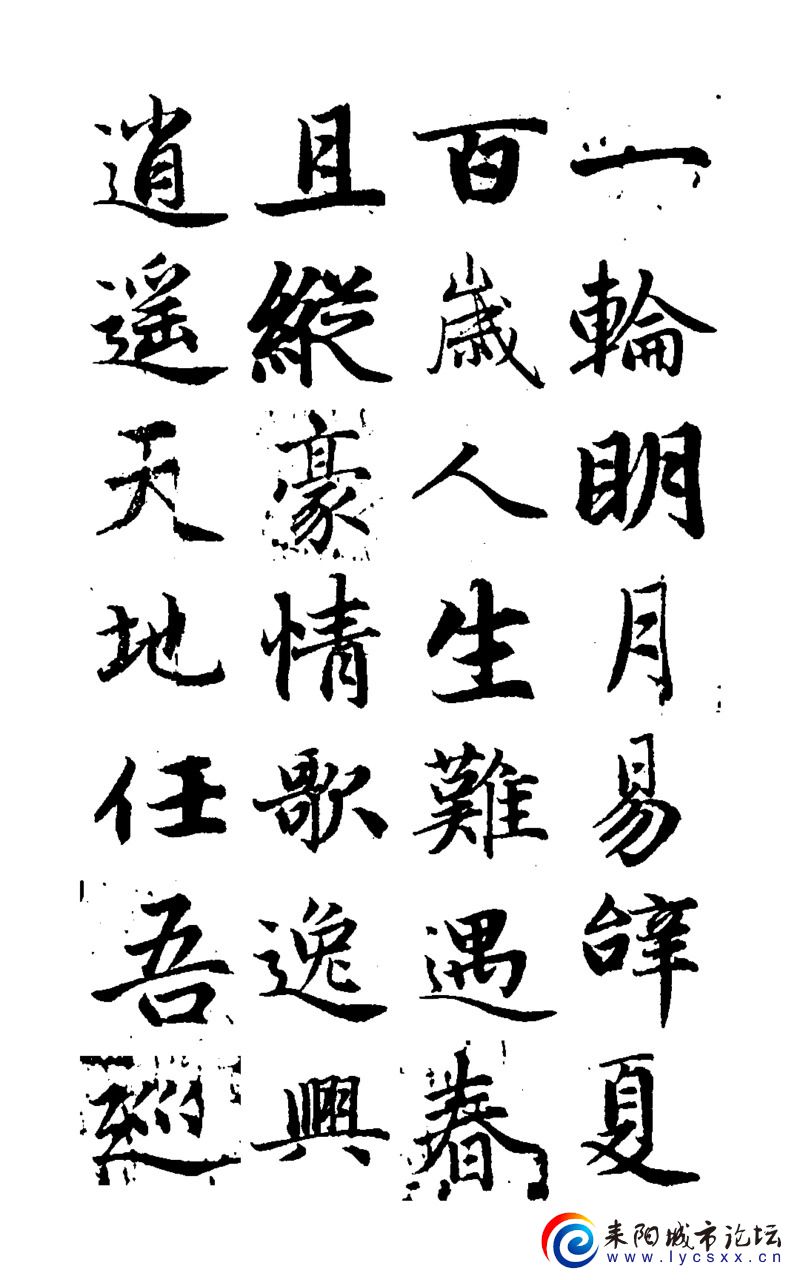 一輪明月易辝夏
百歲人生難遇春
且縱豪情歌逸興
逍遙天地任吾
耒阳城市论坛
www.lycsxx.cn